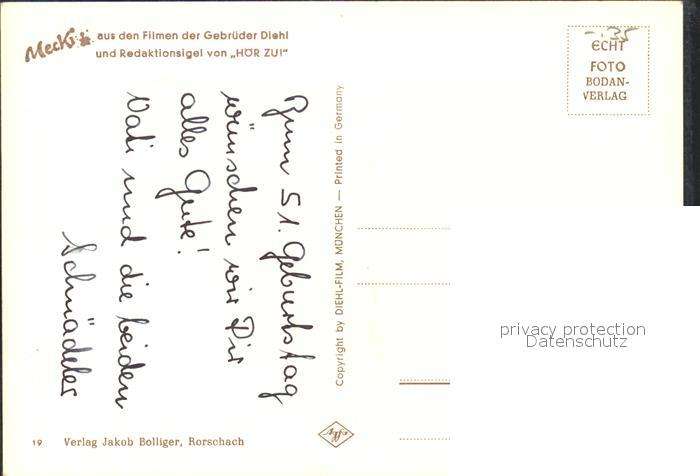 Mecki
aus den Filmen der Gebrüder Diehl
und Redaktionsigel von „HÖR ZU!"
Zum 51. Geburtstag
wünschen wir Dir
alles Gute!
Vati und die beiden
19 Verlag Jakob Bolliger, Rorschach
Copyright by DIEHL-FILM, MÜNCHEN — Printed in Germany
Agfa
-.35
ECHT
FOTO
BODAN-
VERLAG
privacy protection
Datenschutz